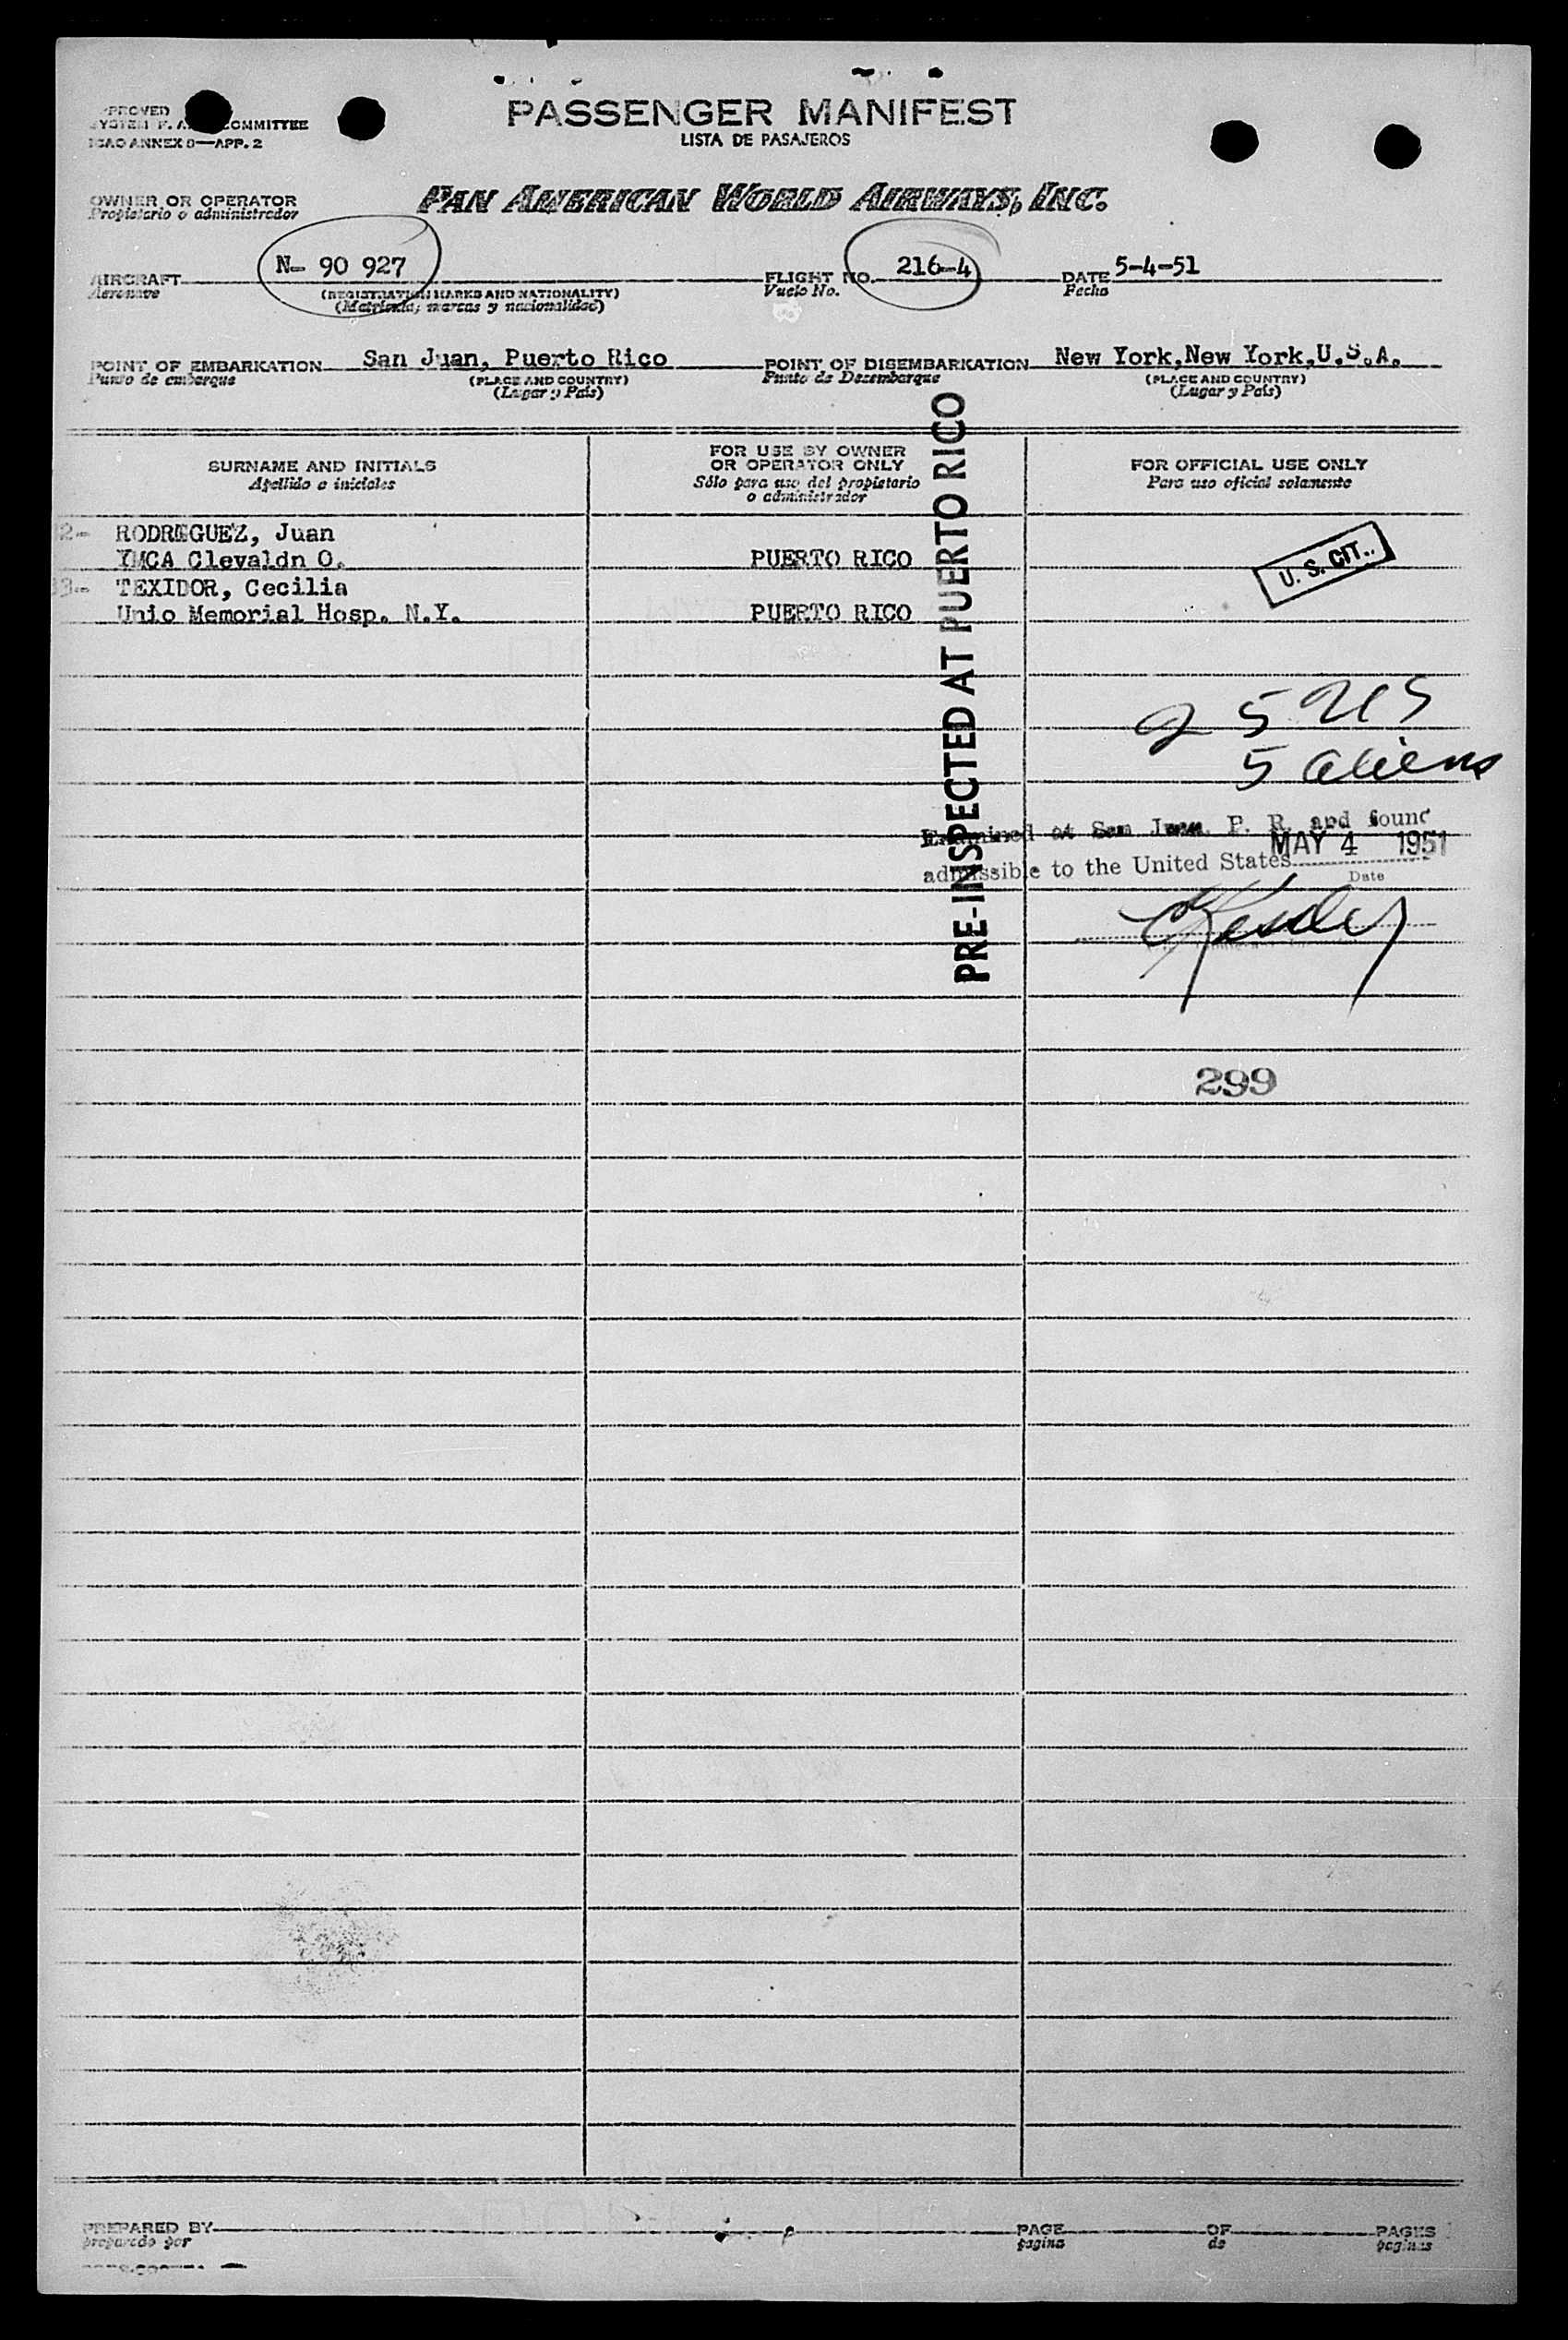 PASSENGER MANIFEST
LISTA DE PASAJEROS
COMMITTEE
ICAO ANNEX 9—APP. 2
OWNER OR OPERATOR
Propietario o administrador
PAN AMERICAN WORLD AIRWAYS, INC.
AIRCRAFT N- 90 927 FLIGHT NO. 216-4 DATE 5-4-51
Aeronave (REGISTRATION MARKS AND NATIONALITY) Vuelo No. Fecha
(Matrícula, marcas y nacionalidad)
POINT OF EMBARKATION San Juan, Puerto Rico POINT OF DISEMBARKATION New York,New York,U.S.A.
Punto de embarque (PLACE AND COUNTRY) Punto de Desembarque (PLACE AND COUNTRY)
(Lugar y País) (Lugar y País)
SURNAME AND INITIALS
Apellido e iniciales
FOR USE BY OWNER
OR OPERATOR ONLY
Sólo para uso del propietario
o administrador
FOR OFFICIAL USE ONLY
Para uso oficial solamente
RODRIGUEZ, Juan
YMCA Clevaldn O. PUERTO RICO
U. S. CIT..
TEXIDOR, Cecilia
Unio Memorial Hosp. N.Y. PUERTO RICO
PRE-INSPECTED AT PUERTO RICO
5 aliens
Examined at San Juan, P. R. and found
admissible to the United States MAY 4 1951
Date
299
PREPARED BY PAGE OF PAGES
preparado por pagina de paginas